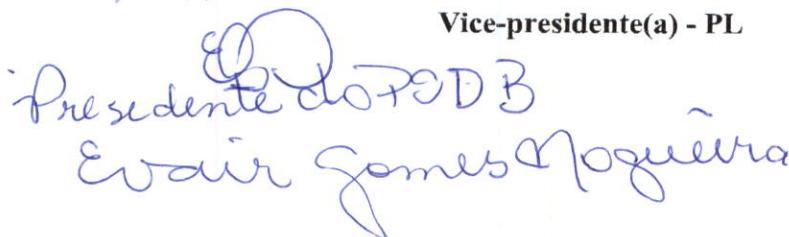 Vice-presidente(a) - PL
Presidente do PSDB
Evair Gomes Nogueira